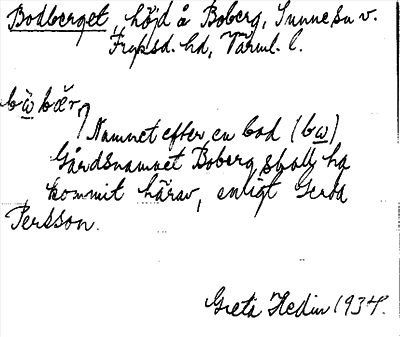 Bodberget, höjd å Boberg, Sunne sn v.
Fryksd. hd, Värml. l.
bὼbær
Namnet efter en bod (bω)
Gårdsnamnet Boberg skall ha
kommit härav, enligt Gerda
Persson.
Greta Hedin 1934.